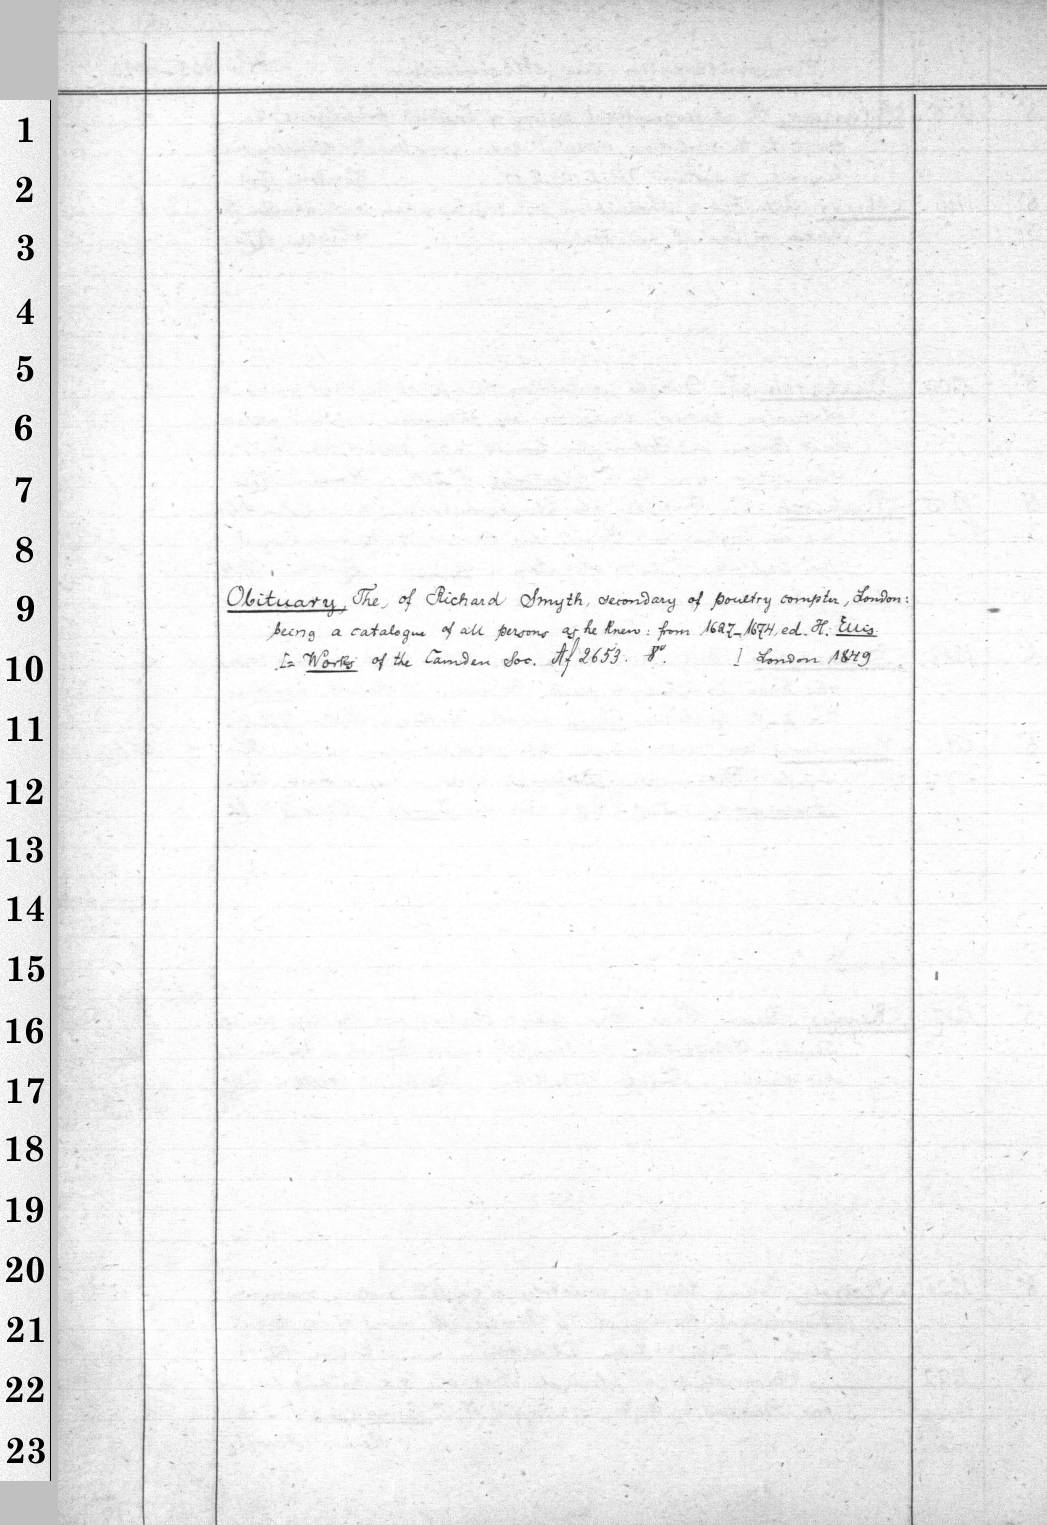 1
2
3
4
5
6
7
8
9
Obituary, The, of Richard Smyth, secondary of poultry compter, London:
being a catalogue of all persons as he knew: from 1627–1674, ed. H. Ellis.
[= Works of the Camden Soc. Af 2653. 8°. ] London 1849
10
11
12
13
14
15
16
17
18
19
20
21
22
23